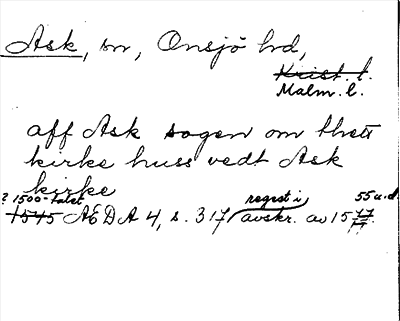 Ask, sn, Onsjö hd,
Krist. l.
Malm. l.
aff Ask sogen om thett
kirke huss vedt Ask
kirke
? 1500-talet regest i 55 u.d.
1545 AEDA 4, s. 317 avskr. av 15